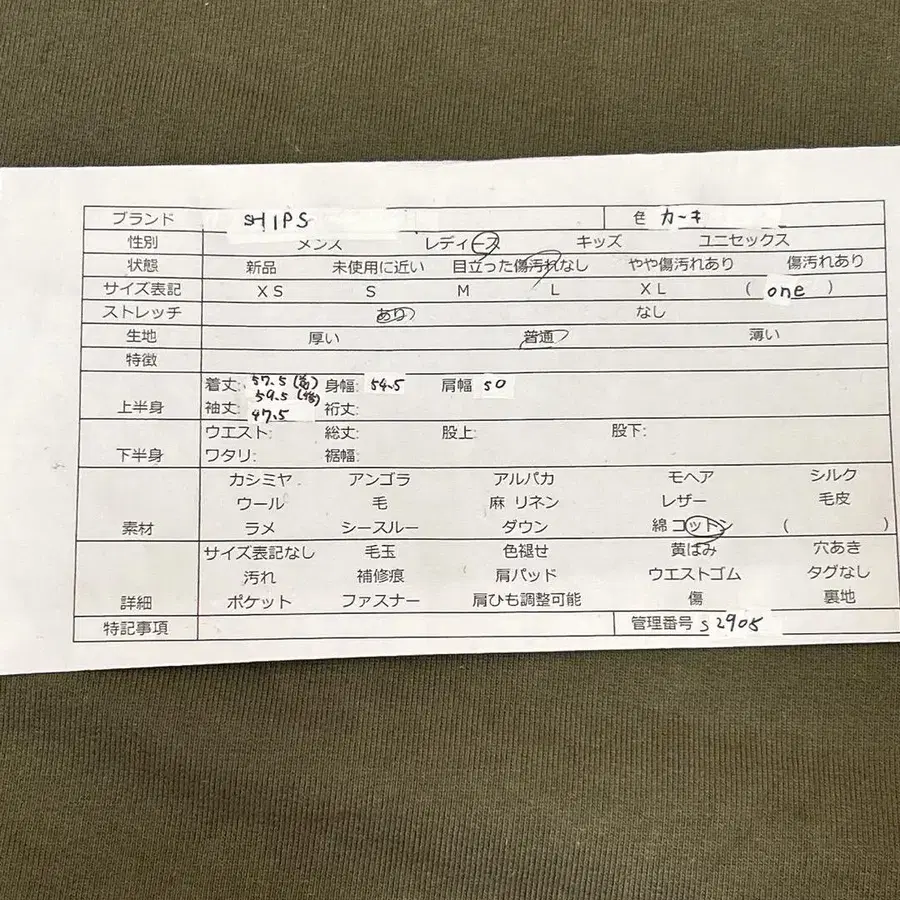 ブランド SHIPS 色 カーキ
性別 メンズ レディース キッズ ユニセックス
状態 新品 未使用に近い 目立った傷汚れなし やや傷汚れあり 傷汚れあり
サイズ表記 XS S M L XL ( one )
ストレッチ あり なし
生地 厚い 普通 薄い
特徴
上半身 着丈: 57.5 (前) 身幅: 54.5 肩幅 50
59.5 (後)
袖丈: 47.5 裄丈:
下半身 ウエスト: 総丈: 股上: 股下:
ワタリ: 裾幅:
カシミヤ アンゴラ アルパカ モヘア シルク
ウール 毛 麻 リネン レザー 毛皮
素材 ラメ シースルー ダウン 綿 コットン ( )
サイズ表記なし 毛玉 色褪せ 黄ばみ 穴あき
汚れ 補修痕 肩パッド ウエストゴム タグなし
詳細 ポケット ファスナー 肩ひも調整可能 傷 裏地
特記事項 管理番号 S2905